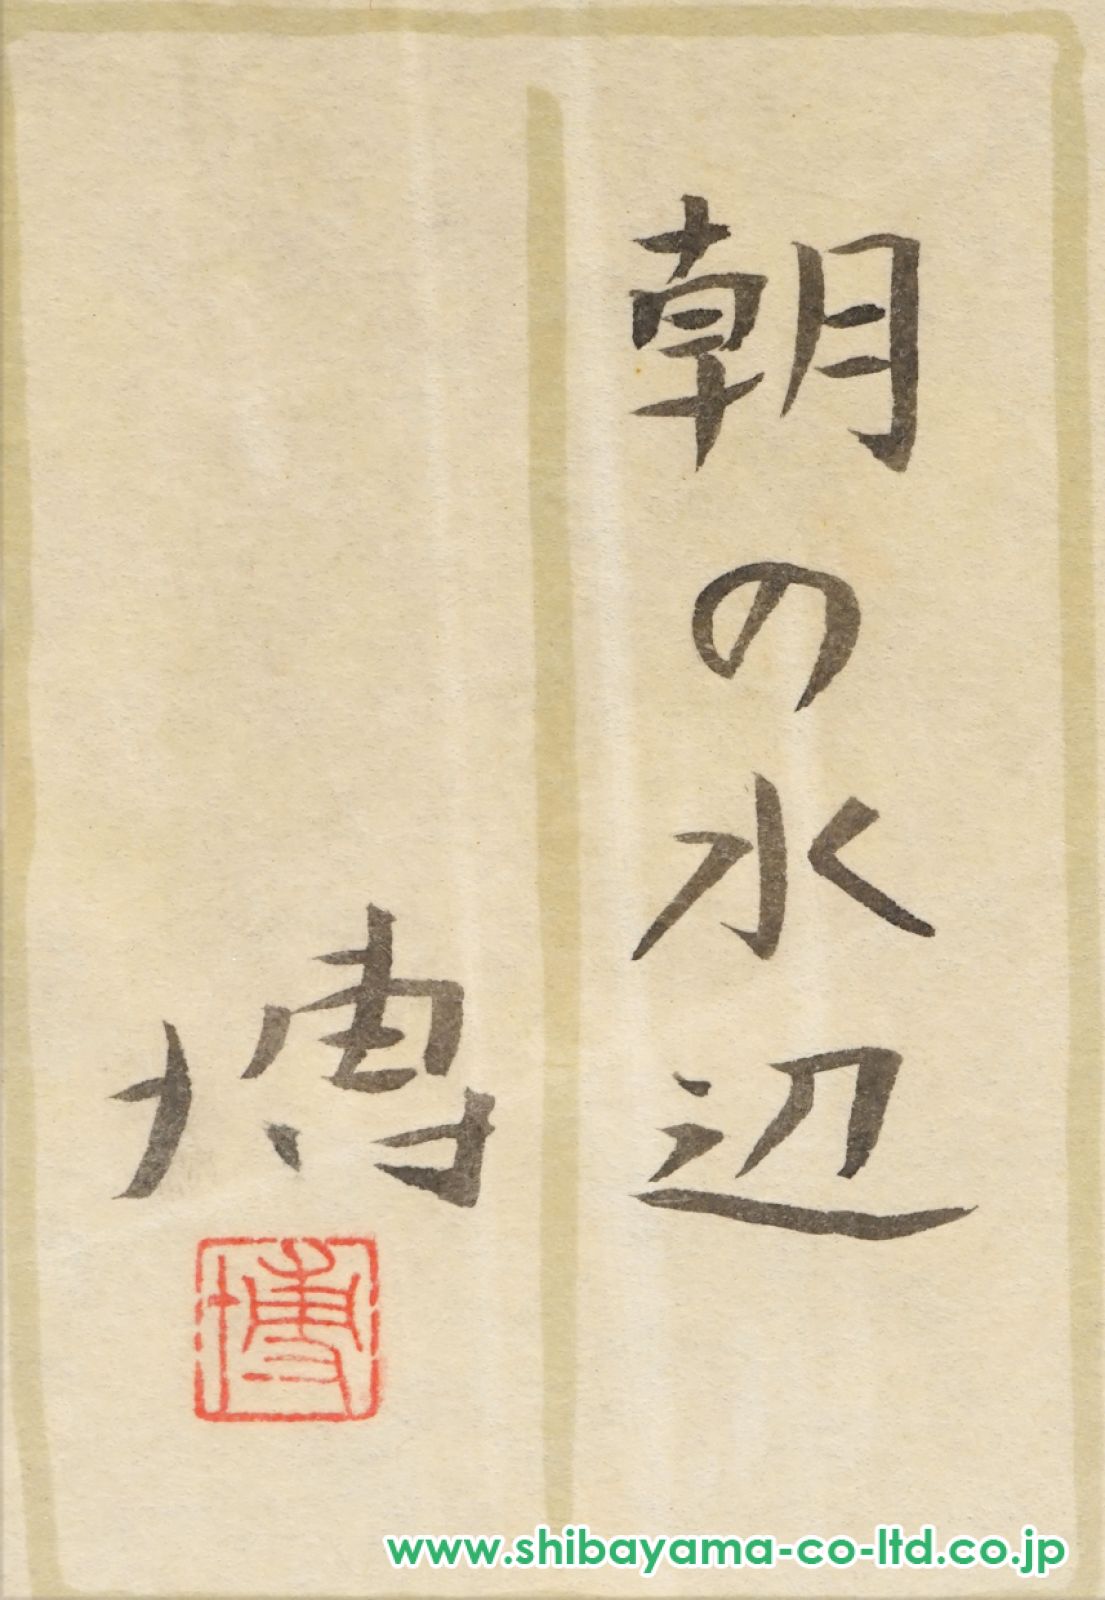 朝の水辺
博
博
www.shibayama-co-ltd.co.jp